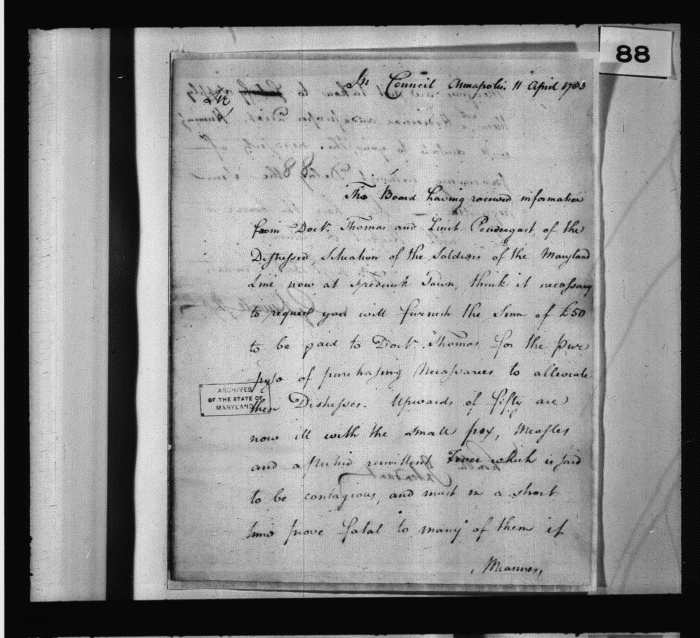 88
In Council Annapolis 11 April 1783
Sir
The Board having received information
from Doctr. Thomas and Lieut. Prendergast, of the
Distressed Situation of the Soldiers of the Maryland
Line now at Frederick Town, think it necessary
to request you will furnish the Sum of £50
to be paid to Doctr. Thomas for the pur
pose of purchasing Necessaries to alleviate
their Distresses. Upwards of fifty are
now ill with the small pox, Measles
and a putrid remittent Fever which is said
to be contagious, and must in a short
time prove fatal to many of them if
Measures,
ARCHIVES
OF THE STATE OF
MARYLAND